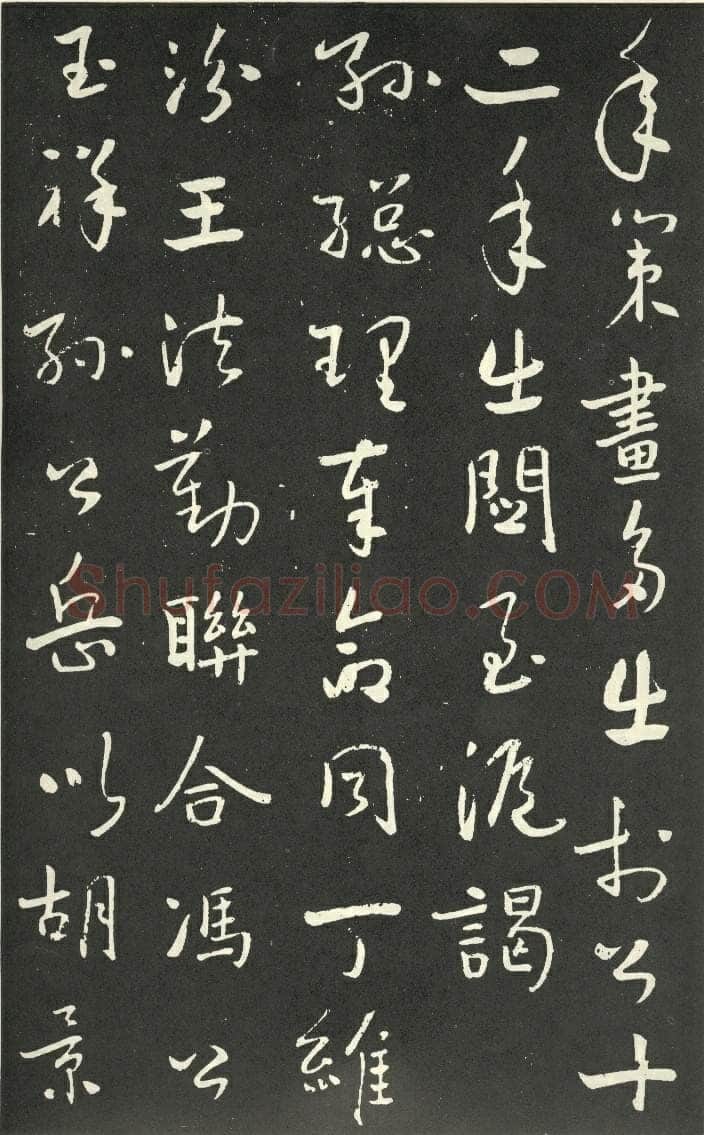 年策畫多出於公十
二年出關至滬謁
孫總理奉命同丁維
汾王法勤聯合馮公
玉祥孫公岳以胡景
Shufaziliao.COM